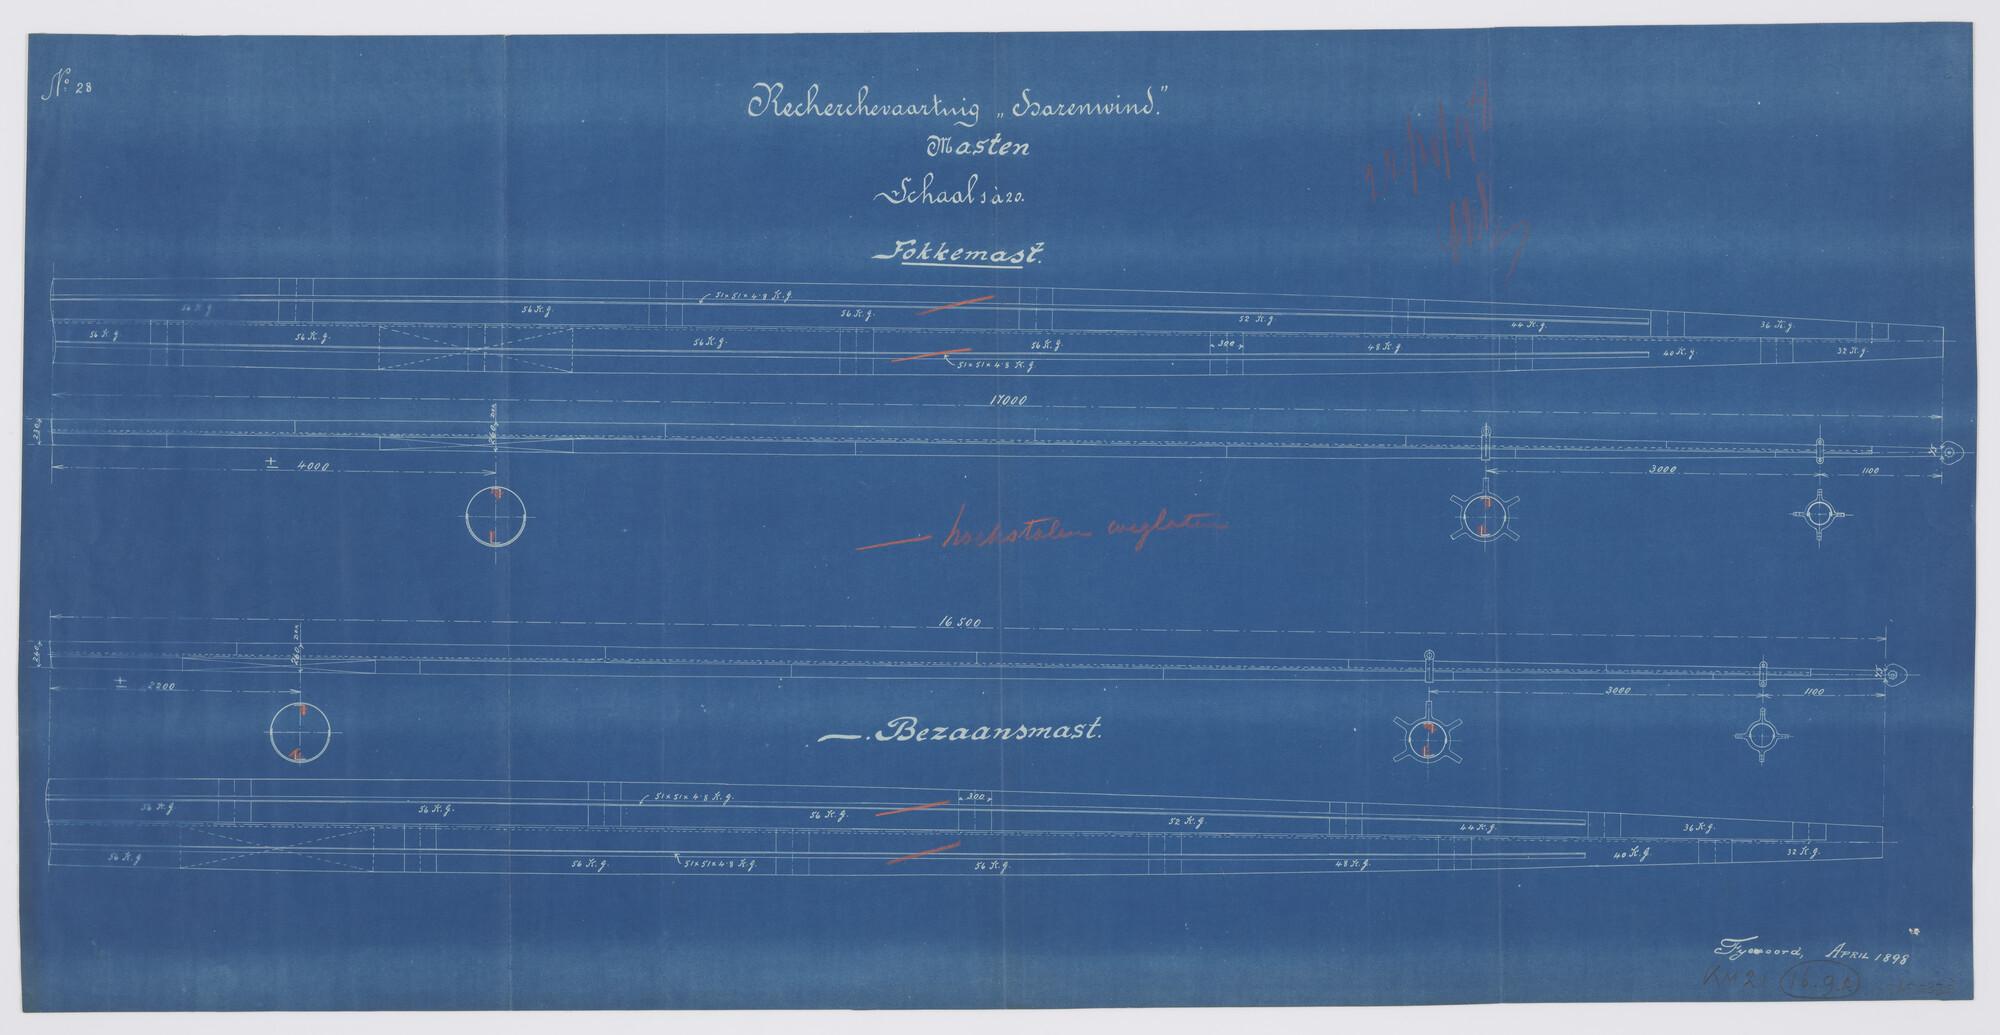 No. 28
Recherchevaartuig „Hazenwind."
Masten
Schaal 1 à 20.
Fokkemast.
56 K.g. 56 K.g. 51×51×4·8 K.g. 56 K.g. 52 K.g. 44 K.g. 36 K.g.
56 K.g. 56 K.g. 56 K.g. 56 K.g. 300 48 K.g. 40 K.g. 32 K.g.
51×51×4·8 K.g.
17000
230 260 Dek
± 4000 3000 1100
hoekstalen weglaten
16500
260 Dek
± 2200 3000 1100
Bezaansmast.
56 K.g. 56 K.g. 51×51×4·8 K.g. 56 K.g. 300 52 K.g. 44 K.g. 36 K.g.
56 K.g. 56 K.g. 51×51×4·8 K.g. 56 K.g. 48 K.g. 40 K.g. 32 K.g.
Fyenoord, April 1898